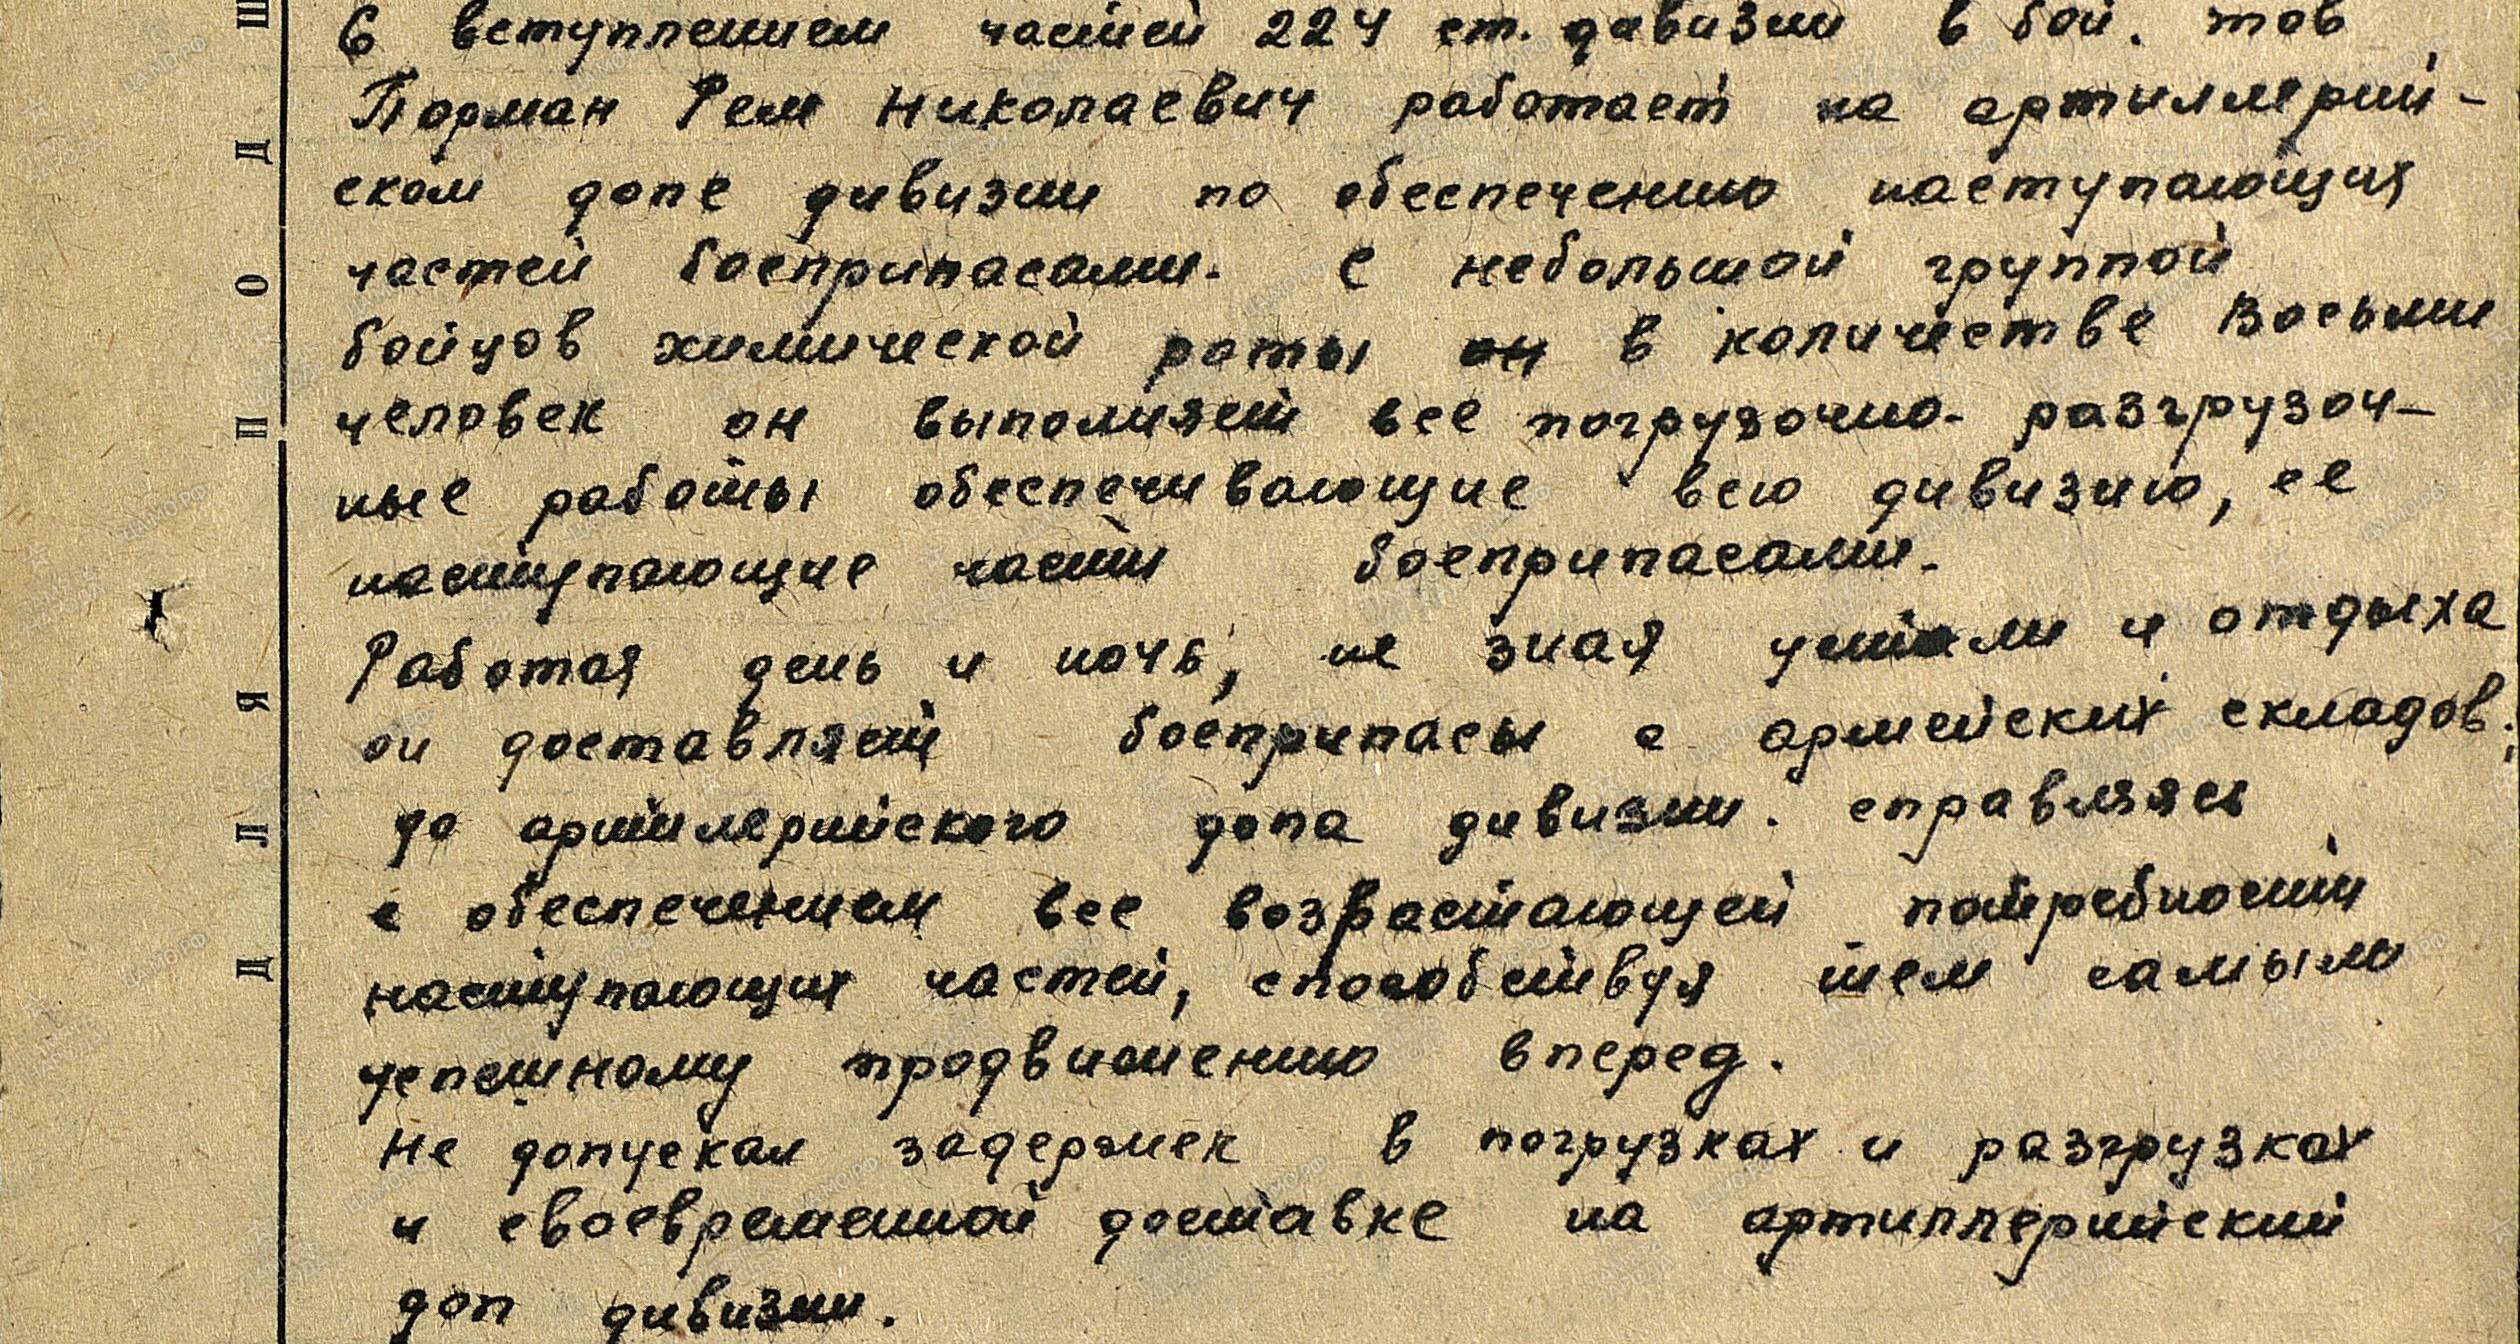 С вступлением частей 224 ст. дивизии в бой. тов
Порман Рем Николаевич работает на артиллерий-
ском допе дивизии по обеспечению наступающих
частей боеприпасами. С небольшой группой
бойцов химической роты он в количестве Восьми
человек он выполняет все погрузочно-разгрузоч-
ные работы обеспечивающие всю дивизию, ее
наступающие части боеприпасами.
Работая день и ночь, не зная устали и отдыха
он доставляет боеприпасы с армейских складов,
до артилерийского допа дивизии. справляясь
с обеспечением все возрастающей потребности
наступающих частей, способствуя тем самым
успешному продвижению вперед.
Не допускал задержек в погрузках и разгрузках
и своевременной доставке на артиллерийский
доп дивизии.
Д Л Я П О Д Ш